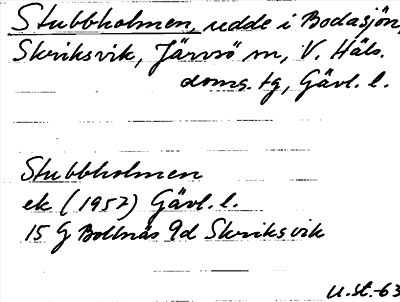 Stubbholmen, udde i Bodasjön,
Skriksvik, Järvsö sn, V. Häls.
doms. tg, Gävl. l.
Stubbholmen
ek (1957) Gävl. l.
15 G Bollnäs 9d Skriksvik
U.st.-63